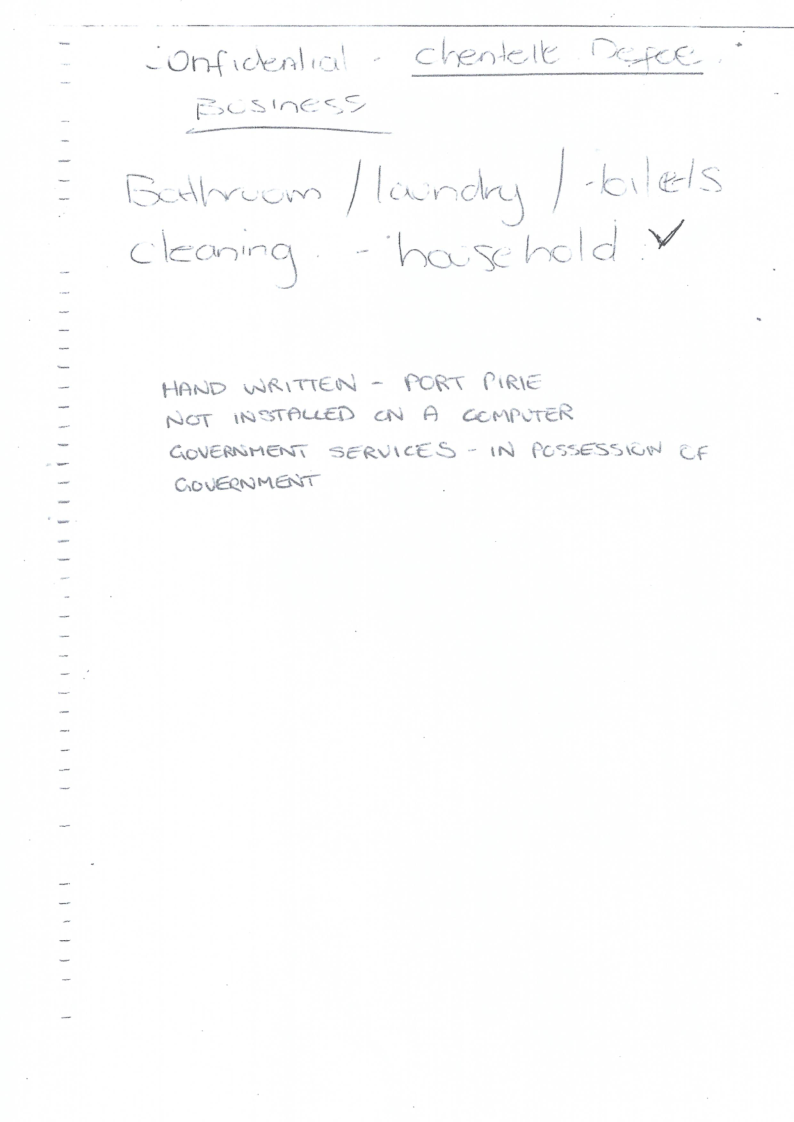 Confidential - Clientele
Business
Bathroom / laundry / toilets
cleaning. - household. ✓
HAND WRITTEN - PORT PIRIE
NOT INSTALLED ON A COMPUTER
GOVERNMENT SERVICES - IN POSSESSION OF
GOVERNMENT